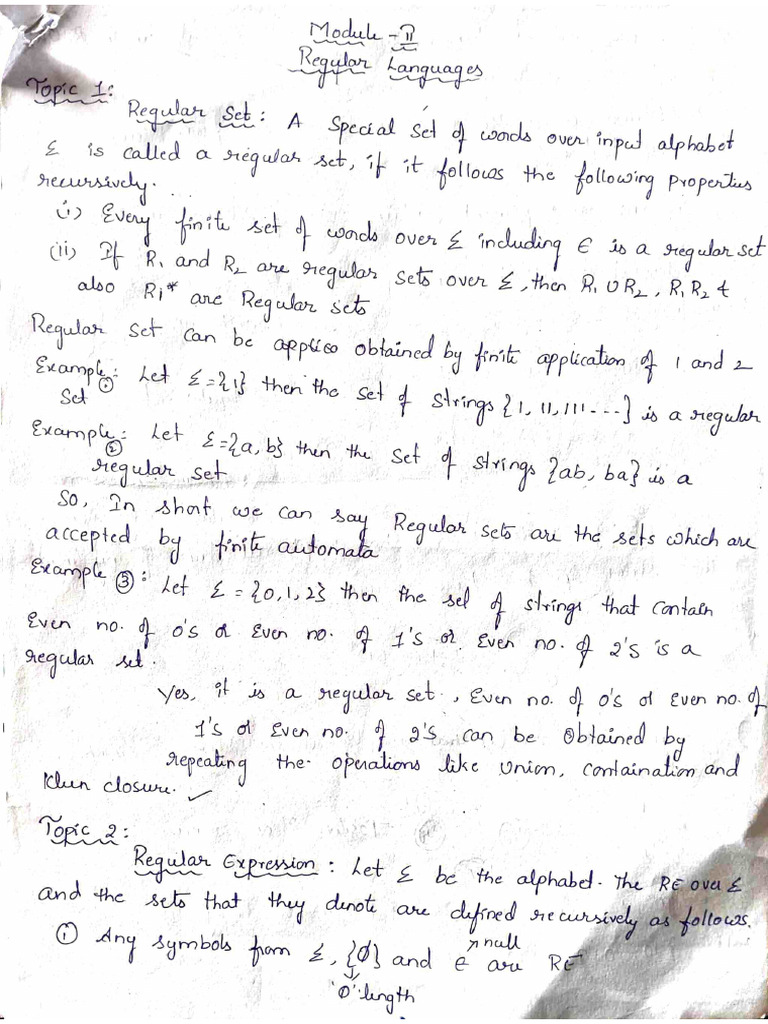 Module - II
Regular Languages
Topic 1:
Regular Set : A Special Set of words over input alphabet
Σ is called a regular set, if it follows the following properties
recursively.
(i) Every finite set of words over Σ including ϵ is a regular set
(ii) If R1 and R2 are regular sets over Σ, then R1 ∪ R2, R1 R2 &
also R1* are Regular sets
Regular set can be applico obtained by finite application of 1 and 2
Example ①: Let Σ={1} then the set of strings {1, 11, 111 ---} is a regular
Set
Example ②: Let Σ={a, b} then the set of strings {ab, ba} is a
regular set
So, In short we can say Regular sets are the sets which are
accepted by finite automata
Example ③: Let Σ = {0,1,2} then the set of strings that contain
Even no. of 0's or Even no. of 1's or Even no. of 2's is a
regular set.
Yes, it is a regular set, Even no. of 0's or Even no. of
1's or Even no. of 2's can be Obtained by
repeating the operations like Union, Containation and
Kleen closure. ✓
Topic 2:
Regular Expression : Let Σ be the alphabet. The RE over Σ
and the sets that they denote are defined recursively as follows.
↗null
① Any symbols from Σ, {Ø} and ϵ are RE
↓
'0' length